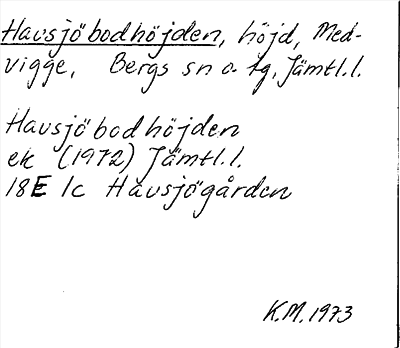 Havsjöbodhöjden, höjd, Med-
vigge, Bergs sn o. tg, Jämtl.l.
Havsjöbodhöjden
ek (1972) Jämtl.l.
18E 1c Havsjögården
K.M. 1973